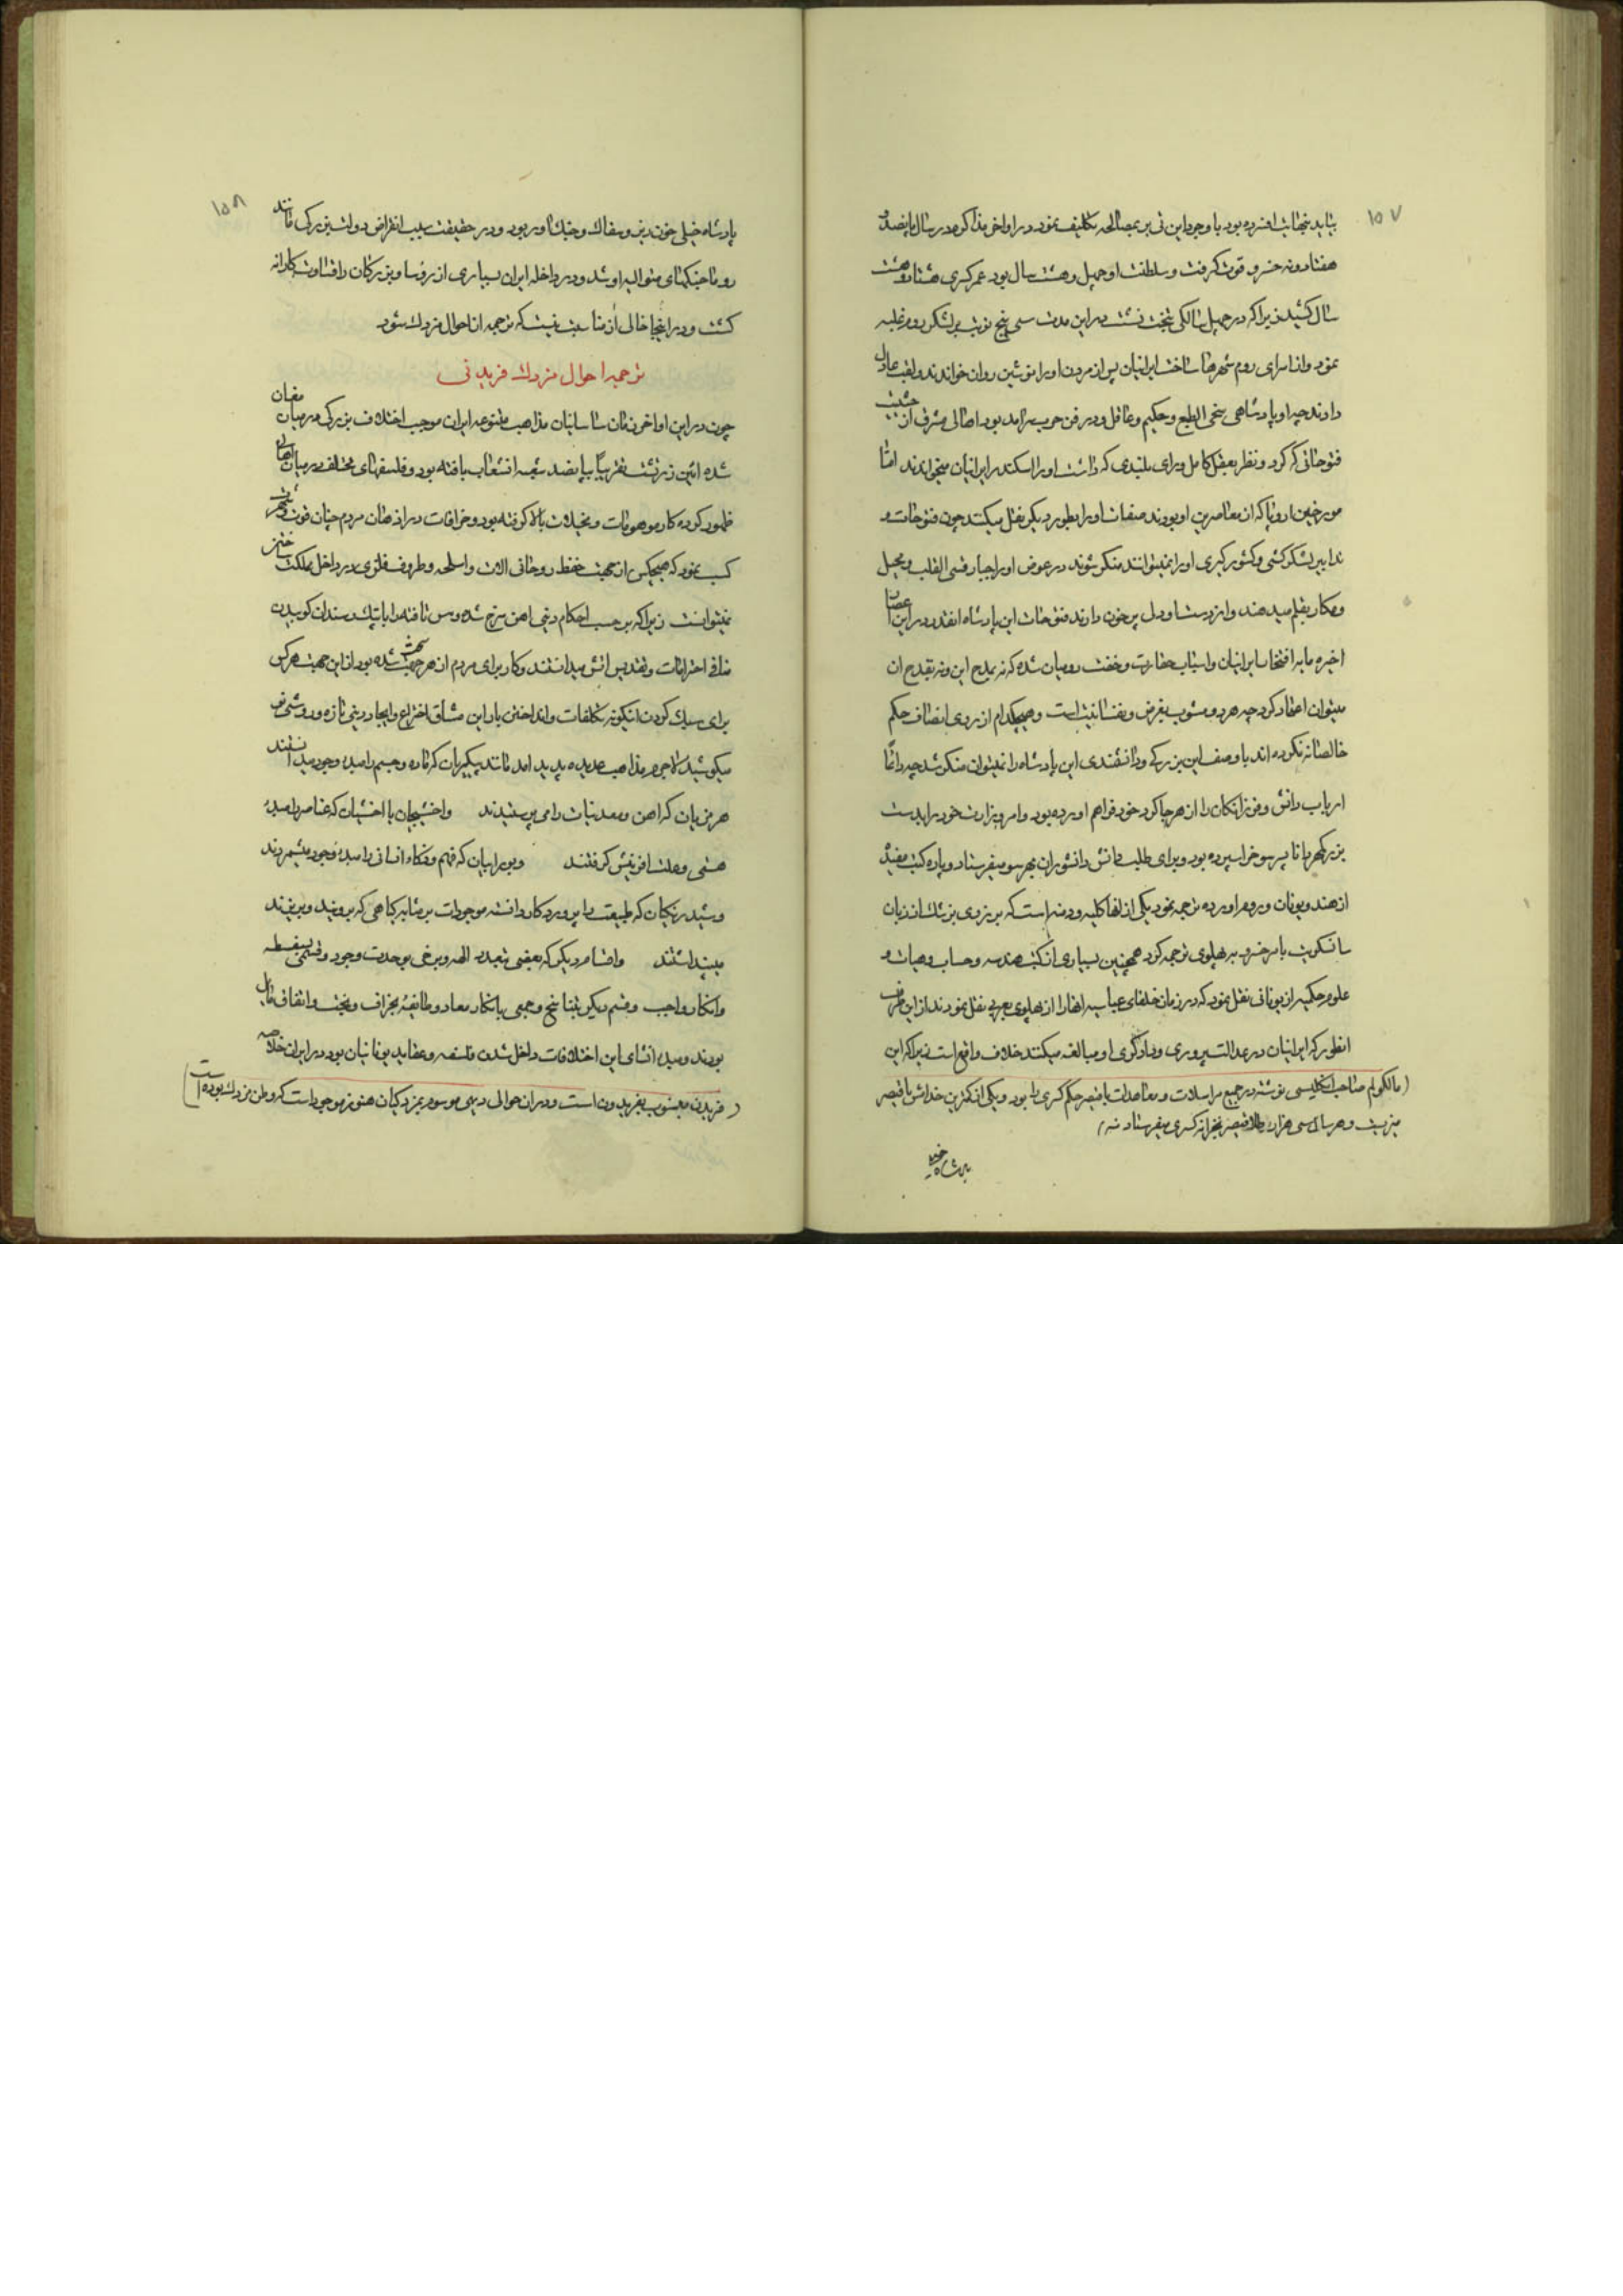 ۱۵۷
بیاید بنهایت افسرده بود با وجود این تی بر بمصالحه تکلیف نمود در اواخر مذاکره در سال پانصد و
هفتاد و نه خسرو فوت گرفت و سلطنت او چهل و هشت سال بود عمر کسری هشتاد و هشت
سال کشید زیرا که در چهل سالگی بتخت نشست در این مدت سی پنج نوبت بر لشکر روم غلبه
نمود و از اسرای روم شهرها ساخت ایرانیان پس از مردن او را نوشین روان خواندند و لقب عادل
دادند چه او پادشاهی سخی الطبع و حکیم و عاقل و در فن حرب سرآمد بود اهالی مشرق از حیثیت
فتوحاتی که کرد و نظر بعقل کامل و رای بلندی که داشت او را اسکندر ایرانیان میخوانند اما
مورخین اروپا که از معاصرین او بودند صفات او را بطور دیگر نقل میکنند چون فتوحات و
تدابیر لشکر کشی و کشور گیری او را نمیتوانند منکر شوند در عوض او را جبار و قسی القلب و محیل
و مکار بقلم میدهند و از دست او دل پر خون دارند فتوحات این پادشاه انقدر در این اعصار
اخیره مایه افتخار ایرانیان و اسباب حقارت و خفت رومیان شده که نه بمدح این و نه بقدح ان
میتوان اعتماد کرد چه هر دو مشوب بغرض و نفسانیت است و هیچکدام از روی انصاف حکم
خالصانه نکرده اند با وصف این بزرگی و دانشمندی این پادشاه را نمیتوان منکر شد چه دائما
ارباب دانش و فرزانگان را از هر جا گرد خود فراهم اورده بود و امر وزارت خود را بدست
بزرگمهر دانا پسر سوخرا سپرده بود و برای طلب دانش دانشوران بهر سو میفرستاد و پاره کتب مفید
از هند و یونان و روم اورده ترجمه نمود یکی از انها کلیله و دمنه است که برزوی پزشک از زبان
سانسکریت بامر خسرو به پهلوی ترجمه کرد همچنین بسیاری از کتب هندسه و حساب و هیات و
علوم حکمیه از یونانی نقل نمود که در زمان خلفای عباسیه انها را از پهلوی بعربی نقل نمودند از این طرف
انطور که ایرانیان در عدالت پروری و دادگری او مبالغه میکنند خلاف واقع است زیرا که این
(مالکولم صاحب انگلیسی نوشته در جمیع مراسلات و معاهدات با قیصر حکم کسری را بود و یکی از کمترین خدامش با قیصر
میزیست و هر سال سی هزار طلا قیصر بخزانه کسری میفرستاد منه)
پادشاه خیلی
۱۵۸
پادشاه خیلی خون ریز و سفاک و جنگ اور بود و در حقیقت سبب انقراض دولت بزرگی مانند
روما جنگهای متوالیه او شد و در داخله ایران بسیاری از رؤسا و بزرگان را قساوت کارانه
کشت و در اینجا خالی از مناسبت نیست که ترجمه از احوال مزدک شود
ترجمه احوال مزدک فریدنی
چون در این اواخر زمان ساسانیان مذاهب متنوعه ایران موجب اختلاف بزرگی در میان مغان
شده ائین زرتشت تقریبا بپانصد شعبه انشعاب یافته بود و فلسفهای مختلف در میان اهالی
ظهور کرده کار موهومات و تخیلات بالا گرفته بود و خرافات در اذهان مردم چنان قوت و شهرت
کسب نمود که هیچکس از جهت حفظ روحانی الات و اسلحه و ظروف فلزی در داخل مملکت ساختن
نمیتوانست زیرا که بر حسب احکام دینی اهن سرخ شده و مس تافته را با پتک و سندان کوبیدن
منافی احترامات و تقدیس اتش میدانستند و کار برای مردم از هر جهت سخت شده بود از این جهت هر کس
برای سبک کردن اینگونه تکلفات و انداختن بار این مشاق اختراع و ایجاد دینی تازه و روشی نو
میکوشید لاجرم مذاهب عدیده پدید امد مانند پیکریان که ماده و جسم را مبدء وجود میدانستند
هرمزیان که اهن و معدنیات را می پرستیدند و اخشیجیان یا اخشیان که عناصر را مبدء
هستی و علت افرینش گرفتند و بیرائیان که فهم و ذکاء انسانی را مبدء وجود میشمردند
و شیدرنگیان که طبیعت را پروردگار دانسته موجودات بر مثابه گیاهی که بروید و بریزد
میپنداشتند و اقسام دیگر که بعضی بتعدد الهه و برخی بوحدت وجود و قسمی بسفسطه
و انکار واجب و قسم دیگر بتناسخ و جمعی بانکار معاد و طایفه بجزاف و بخت و اتفاق قائل
بودند و مبدء انشای این اختلافات داخل شدن فلسفه و عقاید یونانیان بود در ایران خلاصه
(فریدن منسوب بفریدون است و در ان حوالی دیهی موسوم بمزدکیان هنوز موجود است که وطن مزدک بوده است)